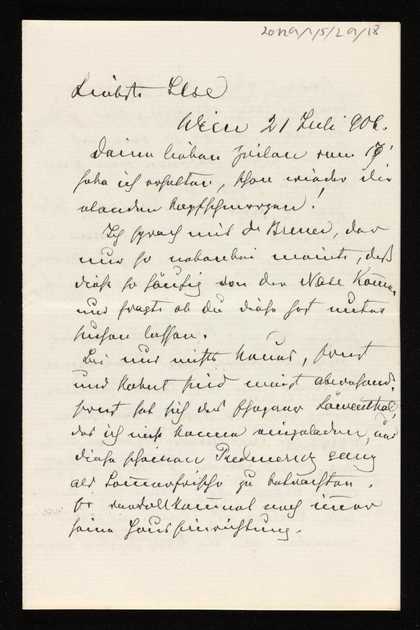 Liebste Else
Wien 21 Juli 906.
Deine lieben Zeilen vom 17
habe ich erhalten, schon wieder die
elenden Kopfschmerzen!
Ich sprach mit Dr Breuer, der
nur so nebenbei meinte, daß
diese so häufig von der Nase kämen
und fragte ob du diese hast unter
suchen lassen.
Bei uns nichts neues, Ernst
und Robert sind meist abwesend.
Ernst hat sich das Löwenthal,
das ich nicht kenne eingeladen, und
diese scheinen ganz
als Sommerfrische zu betrachten.
Er vervollkommnet noch immer
seine Hauseinrichtung.